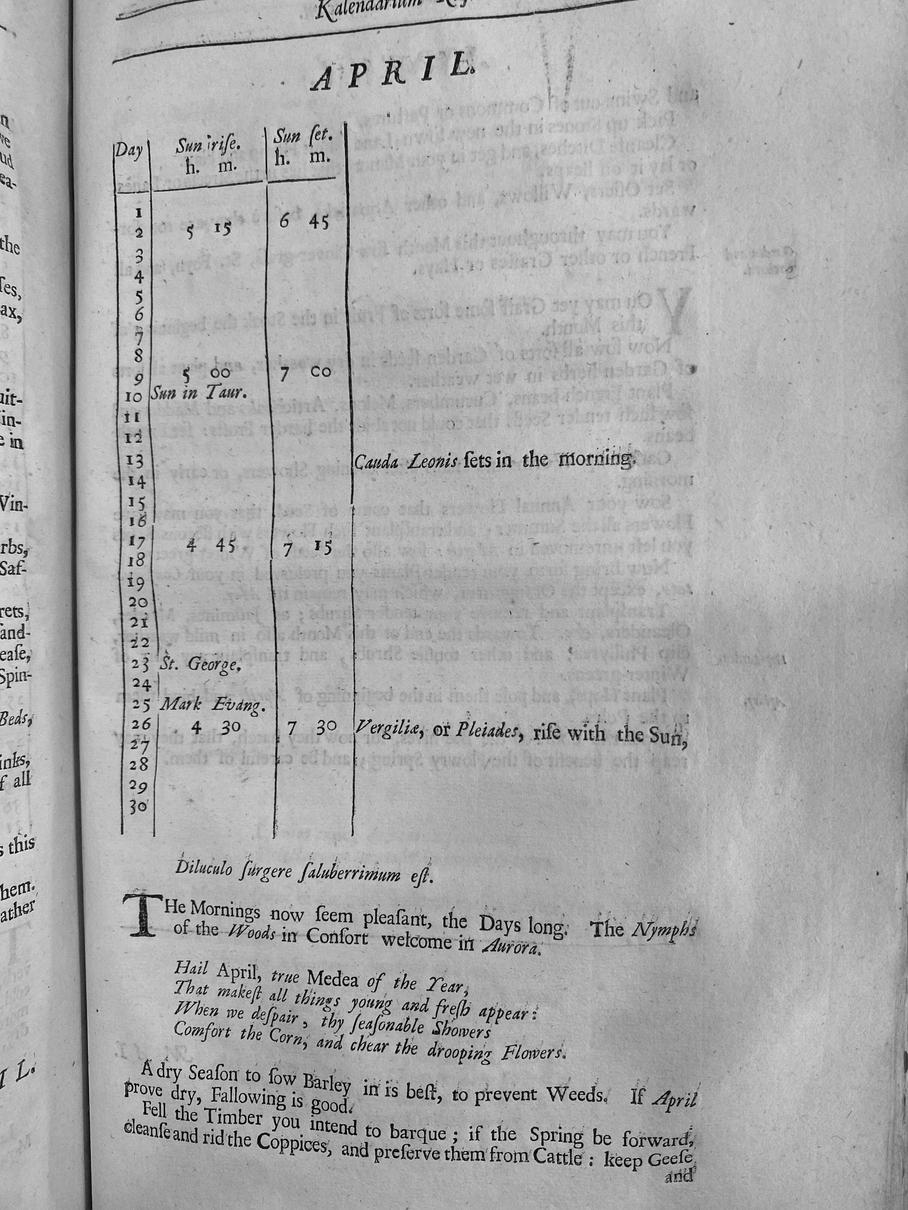 Kalendarium
APRIL.
Day Sun rise. Sun set.
h. m. h. m.
1
2 5 15 6 45
3
4
5
6
7
8
9 5 00 7 00
10 Sun in Taur.
11
12
13 Cauda Leonis ſets in the morning.
14
15
16
17 4 45 7 15
18
19
20
21
22
23 St. George.
24
25 Mark Evang.
26 4 30 7 30 Vergiliæ, or Pleiades, riſe with the Sun,
27
28
29
30
Diluculo ſurgere ſaluberrimum eſt.
THe Mornings now ſeem pleaſant, the Days long. The Nymphs
of the Woods in Conſort welcome in Aurora.
Hail April, true Medea of the Year,
That makeſt all things young and freſh appear:
When we deſpair, thy ſeaſonable Showers
Comfort the Corn, and chear the drooping Flowers.
A dry Seaſon to ſow Barley in is beſt, to prevent Weeds. If April
prove dry, Fallowing is good.
Fell the Timber you intend to barque; if the Spring be forward,
cleanſe and rid the Coppices, and preſerve them from Cattle: keep Geeſe
and